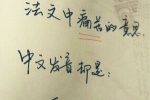 法文中痛苦的意思
中文发音都是：